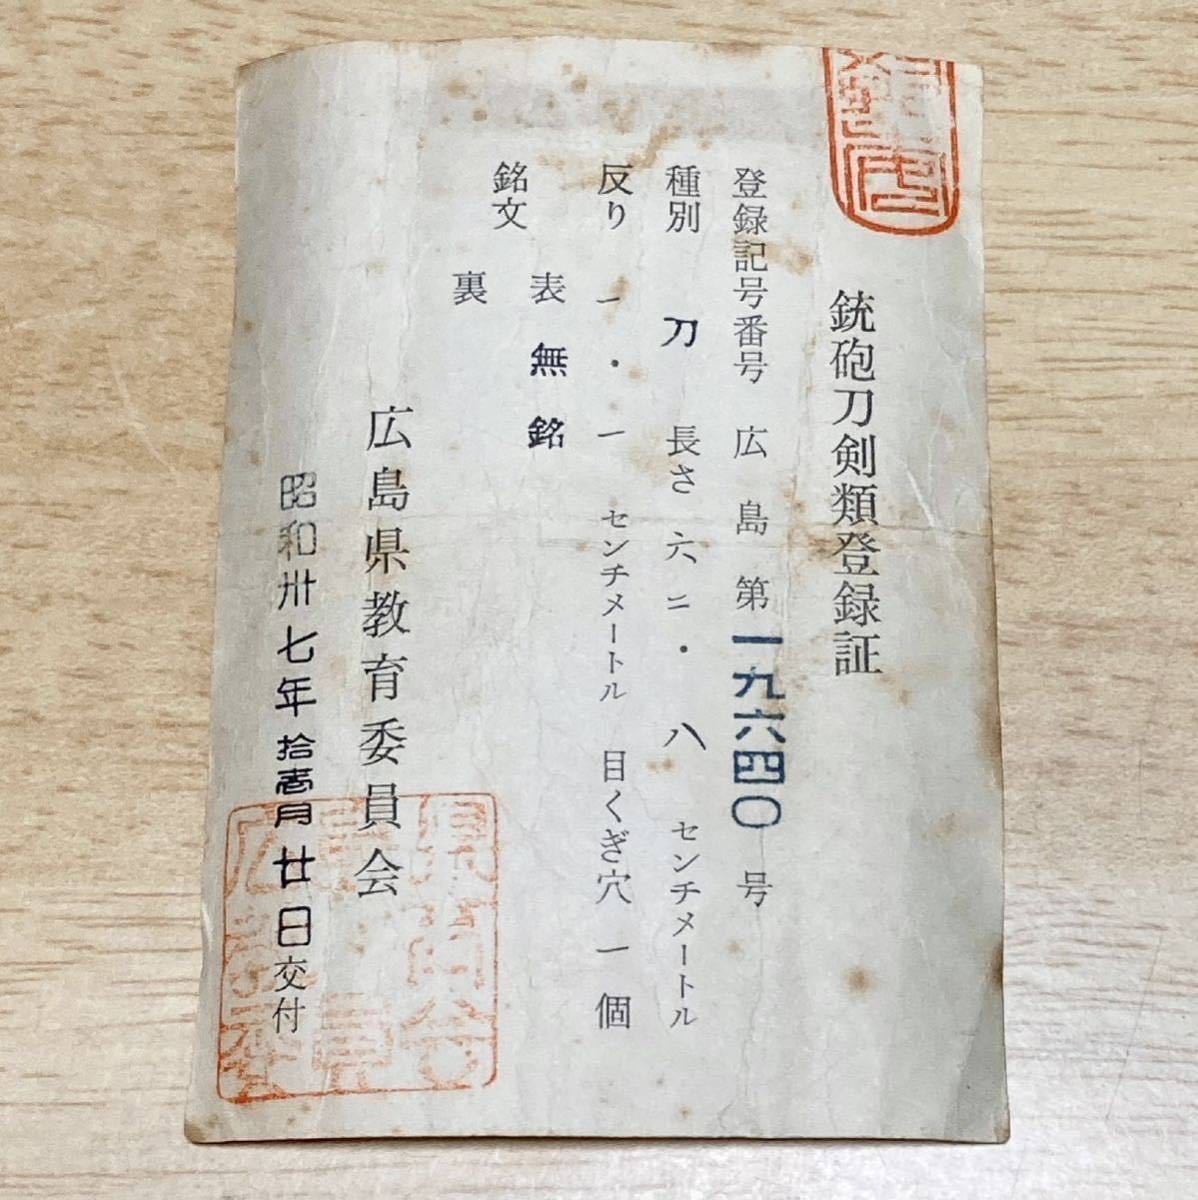 銃砲刀剣類登録証
登録記号番号 広島第一九六四〇号
種別 刀 長さ 六二・八 センチメートル
反り 一・一 センチメートル 目くぎ穴 一個
銘文 表 無銘
裏
広島県教育委員会
昭和卅七年拾壱月廿日交付